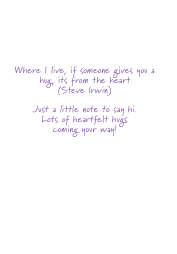 Where I live, if someone gives you a
hug, its from the heart
(Steve Irwin)
Just a little note to say hi.
Lots of heartfelt hugs
coming your way!